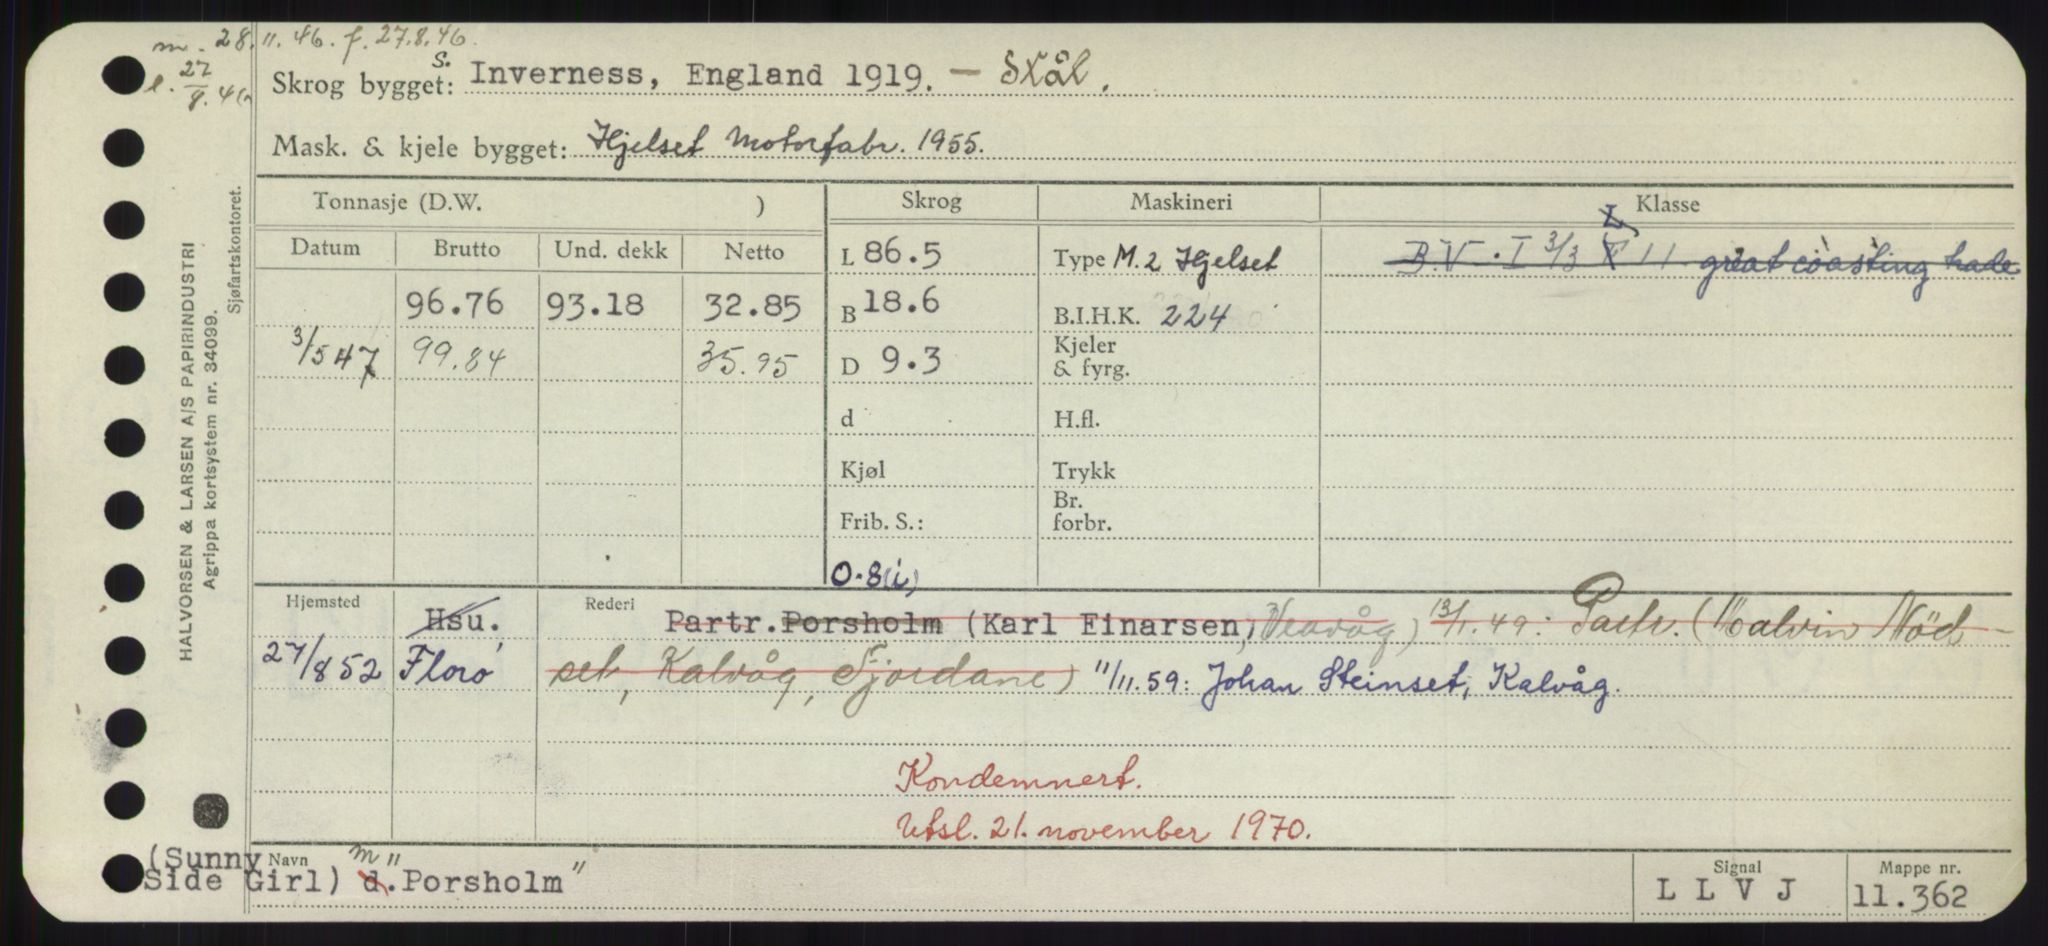 m. 28.11.46. f. 27.8.46.
l. 27/8.46
Skrog bygget: S. Inverness, England 1919. – Stål.
Mask. & kjele bygget: Hjelset Motorfabr. 1955.
Tonnasje (D.W. ) Skrog Maskineri Klasse
Datum Brutto Und. dekk Netto L 86.5 Type M. 2 Hjelset B.V. I 3/3 L 11 great coasting trade
96.76 93.18 32.85 B 18.6 B.I.H.K. 224
3/5 47 99.84 35.95 D 9.3 Kjeler & fyrg.
d H.fl.
Kjøl Trykk
Frib. S.: Br. forbr.
0.8(i)
Hjemsted Hsu. Rederi Partr. Porsholm (Karl Einarsen, Veavåg) 13/1.49: Partr. (Malvin Nöd-
27/8 52 Florø set, Kalvåg, Fjordane) 11/11.59: Johan Steinset, Kalvåg.
Kondemnert.
Utsl. 21. november 1970.
(Sunny Side Girl) Navn m d. "Porsholm"
Signal LLVJ
Mappe nr. 11.362
HALVORSEN & LARSEN A/S PAPIRINDUSTRI
Agrippa kortsystem nr. 34099.
Sjøfartskontoret.